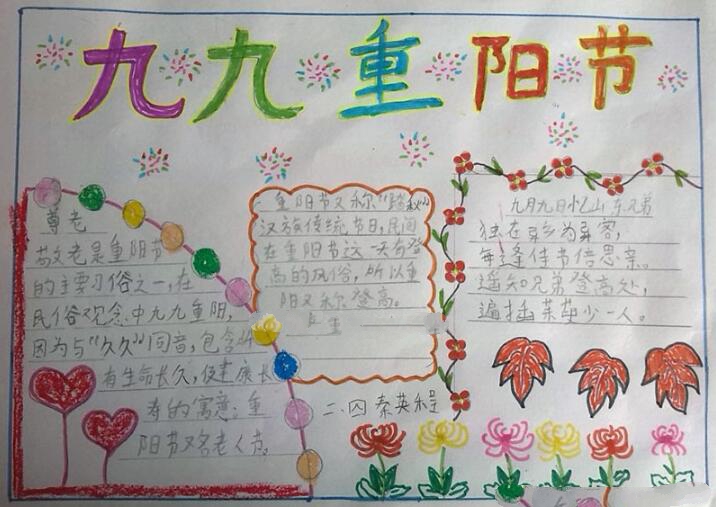 九九重阳节
尊老
敬老是重阳节
的主要习俗之一,在
民俗观念中九九重阳,
因为与"久久"同音,包含
有生命长久,健康长
寿的寓意:重
阳节又名老人节。
重阳节又称"踏秋"
汉族传统节日,民间
在重阳节这一天有登
高的风俗,所以重
阳又称登高。
二.四 秦英程
九月九日忆山东兄弟
独在异乡为异客,
每逢佳节倍思亲。
遥知兄弟登高处,
遍插茱萸少一人。